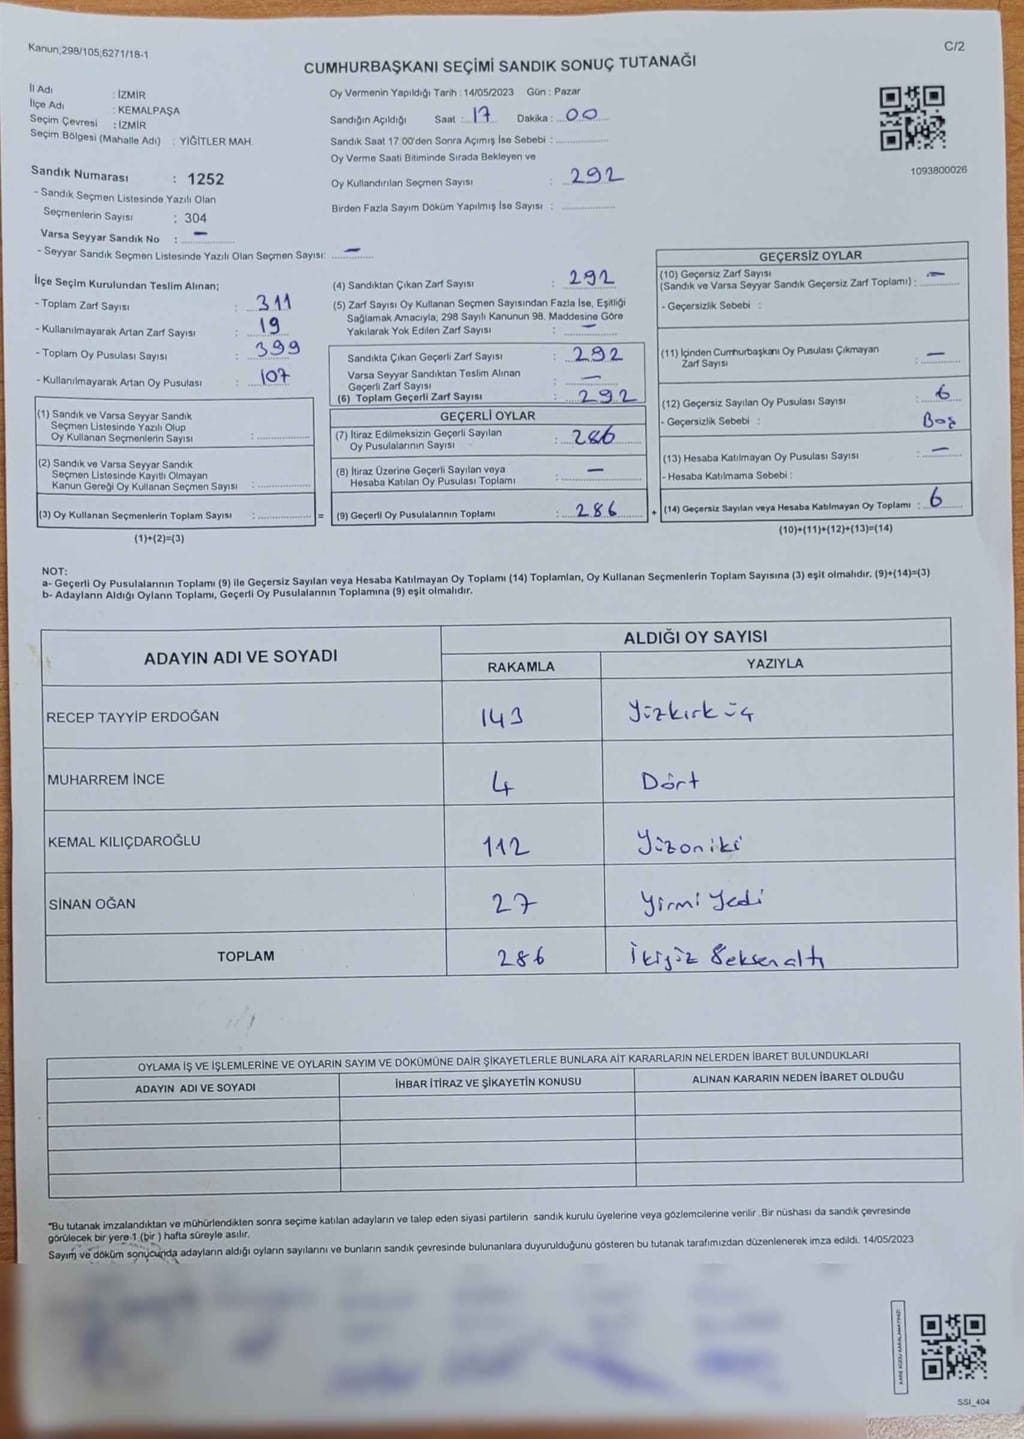 Kanun,298/105,6271/18-1
C/2
CUMHURBAŞKANI SEÇİMİ SANDIK SONUÇ TUTANAĞI
İl Adı : İZMİR
İlçe Adı : KEMALPAŞA
Seçim Çevresi : İZMİR
Seçim Bölgesi (Mahalle Adı) : YİĞİTLER MAH.
Sandık Numarası : 1252
- Sandık Seçmen Listesinde Yazılı Olan
Seçmenlerin Sayısı : 304
Varsa Seyyar Sandık No : —
- Seyyar Sandık Seçmen Listesinde Yazılı Olan Seçmen Sayısı: —
Oy Vermenin Yapıldığı Tarih : 14/05/2023 Gün : Pazar
Sandığın Açıldığı Saat : 17 Dakika : 00
Sandık Saat 17:00'den Sonra Açımış İse Sebebi :
Oy Verme Saati Bitiminde Sırada Bekleyen ve
Oy Kullandırılan Seçmen Sayısı : 292
Birden Fazla Sayım Döküm Yapılmış İse Sayısı :
1093800026
İlçe Seçim Kurulundan Teslim Alınan;
- Toplam Zarf Sayısı : 311
- Kullanılmayarak Artan Zarf Sayısı : 19
- Toplam Oy Pusulası Sayısı : 399
- Kullanılmayarak Artan Oy Pusulası : 107
(1) Sandık ve Varsa Seyyar Sandık
Seçmen Listesinde Yazılı Olup
Oy Kullanan Seçmenlerin Sayısı :
(2) Sandık ve Varsa Seyyar Sandık
Seçmen Listesinde Kayıtlı Olmayan
Kanun Gereği Oy Kullanan Seçmen Sayısı :
(3) Oy Kullanan Seçmenlerin Toplam Sayısı : =
(1)+(2)=(3)
(4) Sandıktan Çıkan Zarf Sayısı : 292
(5) Zarf Sayısı Oy Kullanan Seçmen Sayısından Fazla İse, Eşitliği
Sağlamak Amacıyla, 298 Sayılı Kanunun 98. Maddesine Göre
Yakılarak Yok Edilen Zarf Sayısı : —
Sandıkta Çıkan Geçerli Zarf Sayısı : 292
Varsa Seyyar Sandıktan Teslim Alınan
Geçerli Zarf Sayısı : —
(6) Toplam Geçerli Zarf Sayısı : 292
GEÇERLİ OYLAR
(7) İtiraz Edilmeksizin Geçerli Sayılan
Oy Pusulalarının Sayısı : 286
(8) İtiraz Üzerine Geçerli Sayılan veya
Hesaba Katılan Oy Pusulası Toplamı : —
(9) Geçerli Oy Pusulalarının Toplamı : 286 +
GEÇERSİZ OYLAR
(10) Geçersiz Zarf Sayısı
(Sandık ve Varsa Seyyar Sandık Geçersiz Zarf Toplamı) : —
- Geçersizlik Sebebi :
(11) İçinden Cumhurbaşkanı Oy Pusulası Çıkmayan
Zarf Sayısı : —
(12) Geçersiz Sayılan Oy Pusulası Sayısı : 6
- Geçersizlik Sebebi : Boş
(13) Hesaba Katılmayan Oy Pusulası Sayısı : —
- Hesaba Katılmama Sebebi :
(14) Geçersiz Sayılan veya Hesaba Katılmayan Oy Toplamı : 6
(10)+(11)+(12)+(13)=(14)
NOT:
a- Geçerli Oy Pusulalarının Toplamı (9) ile Geçersiz Sayılan veya Hesaba Katılmayan Oy Toplamı (14) Toplamları, Oy Kullanan Seçmenlerin Toplam Sayısına (3) eşit olmalıdır. (9)+(14)=(3)
b- Adayların Aldığı Oyların Toplamı, Geçerli Oy Pusulalarının Toplamına (9) eşit olmalıdır.
ADAYIN ADI VE SOYADI
ALDIĞI OY SAYISI
RAKAMLA YAZIYLA
RECEP TAYYİP ERDOĞAN 143 Yüzkırk üç
MUHARREM İNCE 4 Dört
KEMAL KILIÇDAROĞLU 112 Yüzoniki
SİNAN OĞAN 27 Yirmi Yedi
TOPLAM 286 İkiyüz Seksenaltı
OYLAMA İŞ VE İŞLEMLERİNE VE OYLARIN SAYIM VE DÖKÜMÜNE DAİR ŞİKAYETLERLE BUNLARA AİT KARARLARIN NELERDEN İBARET BULUNDUKLARI
ADAYIN ADI VE SOYADI İHBAR İTİRAZ VE ŞİKAYETİN KONUSU ALINAN KARARIN NEDEN İBARET OLDUĞU
"Bu tutanak imzalandıktan ve mühürlendikten sonra seçime katılan adayların ve talep eden siyasi partilerin sandık kurulu üyelerine veya gözlemcilerine verilir .Bir nüshası da sandık çevresinde
görülecek bir yere 1 (bir ) hafta süreyle asılır.
Sayım ve döküm sonucunda adayların aldığı oyların sayılarını ve bunların sandık çevresinde bulunanlara duyurulduğunu gösteren bu tutanak tarafımızdan düzenlenerek imza edildi. 14/05/2023
SSI_404